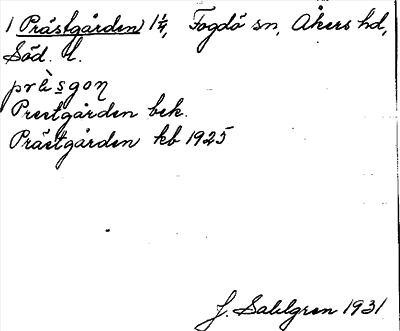 1 Prästgården 1/4, Fogdö sn, Åkers hd,
Söd. l.
prä̀sgoṇ
Prestgården bek.
Prästgården kb 1925
J. Sahlgren 1931